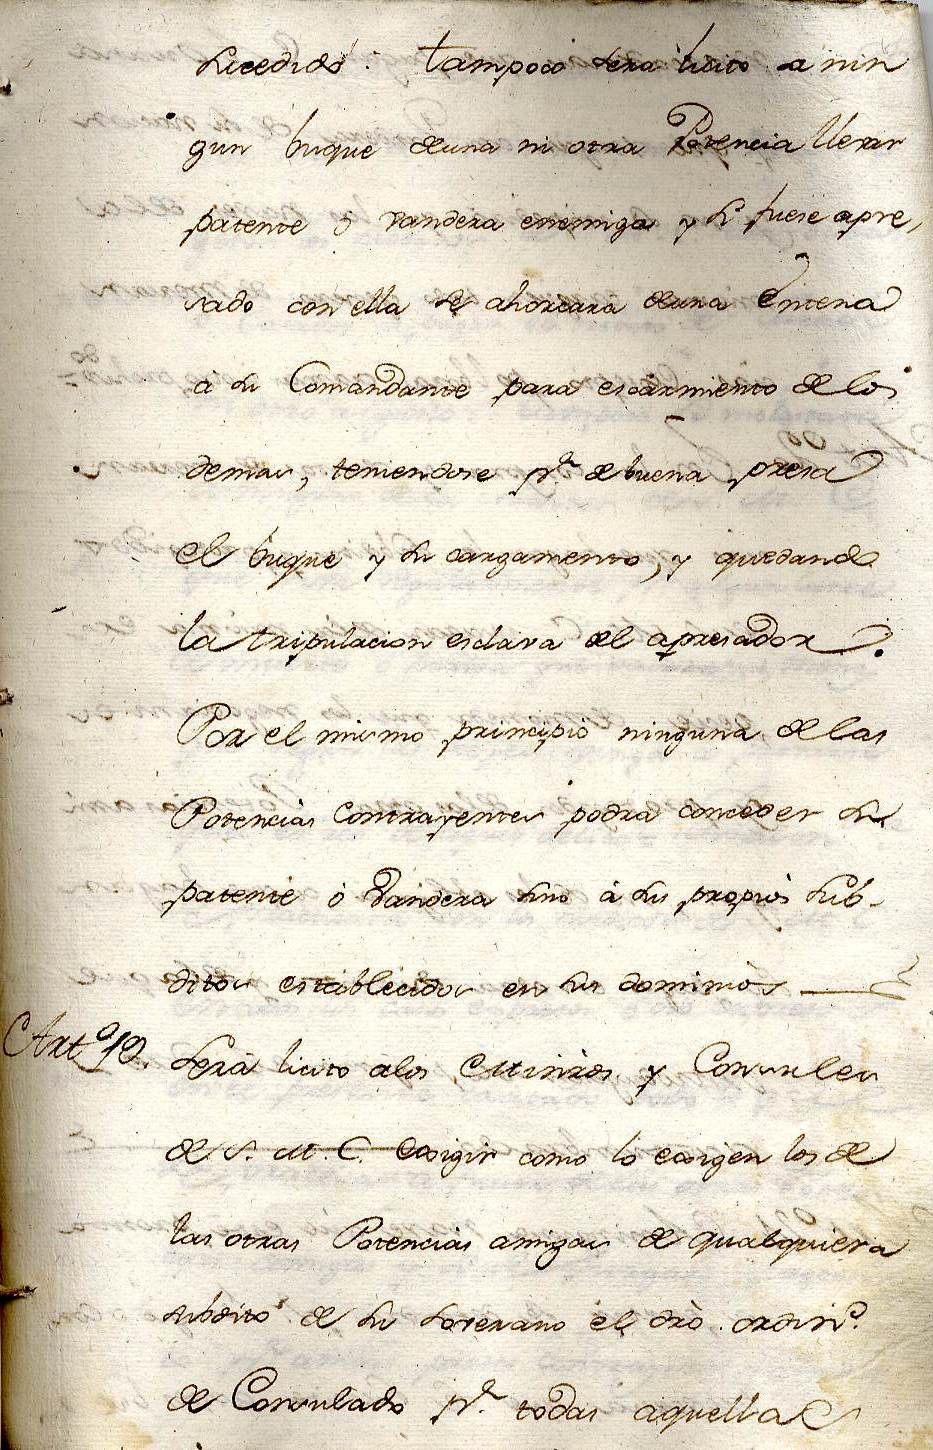 sucedido: tampoco sera licito a nin
gun buque de una ni otra Potencia llevar
patente ó vandera enemiga y si fuere apre,
sado con ella se ahorcara de una Entena
a su Comandante para escarmiento de los
demas, teniendose pr. de buena presa
el buque y su cargamento, y quedando
la tripulacion esclava del apresador.
Por el mismo principio ninguna de las
Potencias Contrayentes podra conceder su
patente ó Vandera sino à sus propios sub-
ditos establecidos en sus dominios
Arto. 10. Serà licito a los Minròs. y Consules
de S. M. C. exigir como lo exigen los de
las otras Potencias amigas de qualquiera
subdito de su Soverano el dro. ordino.
de Consulado pr. todas aquellas